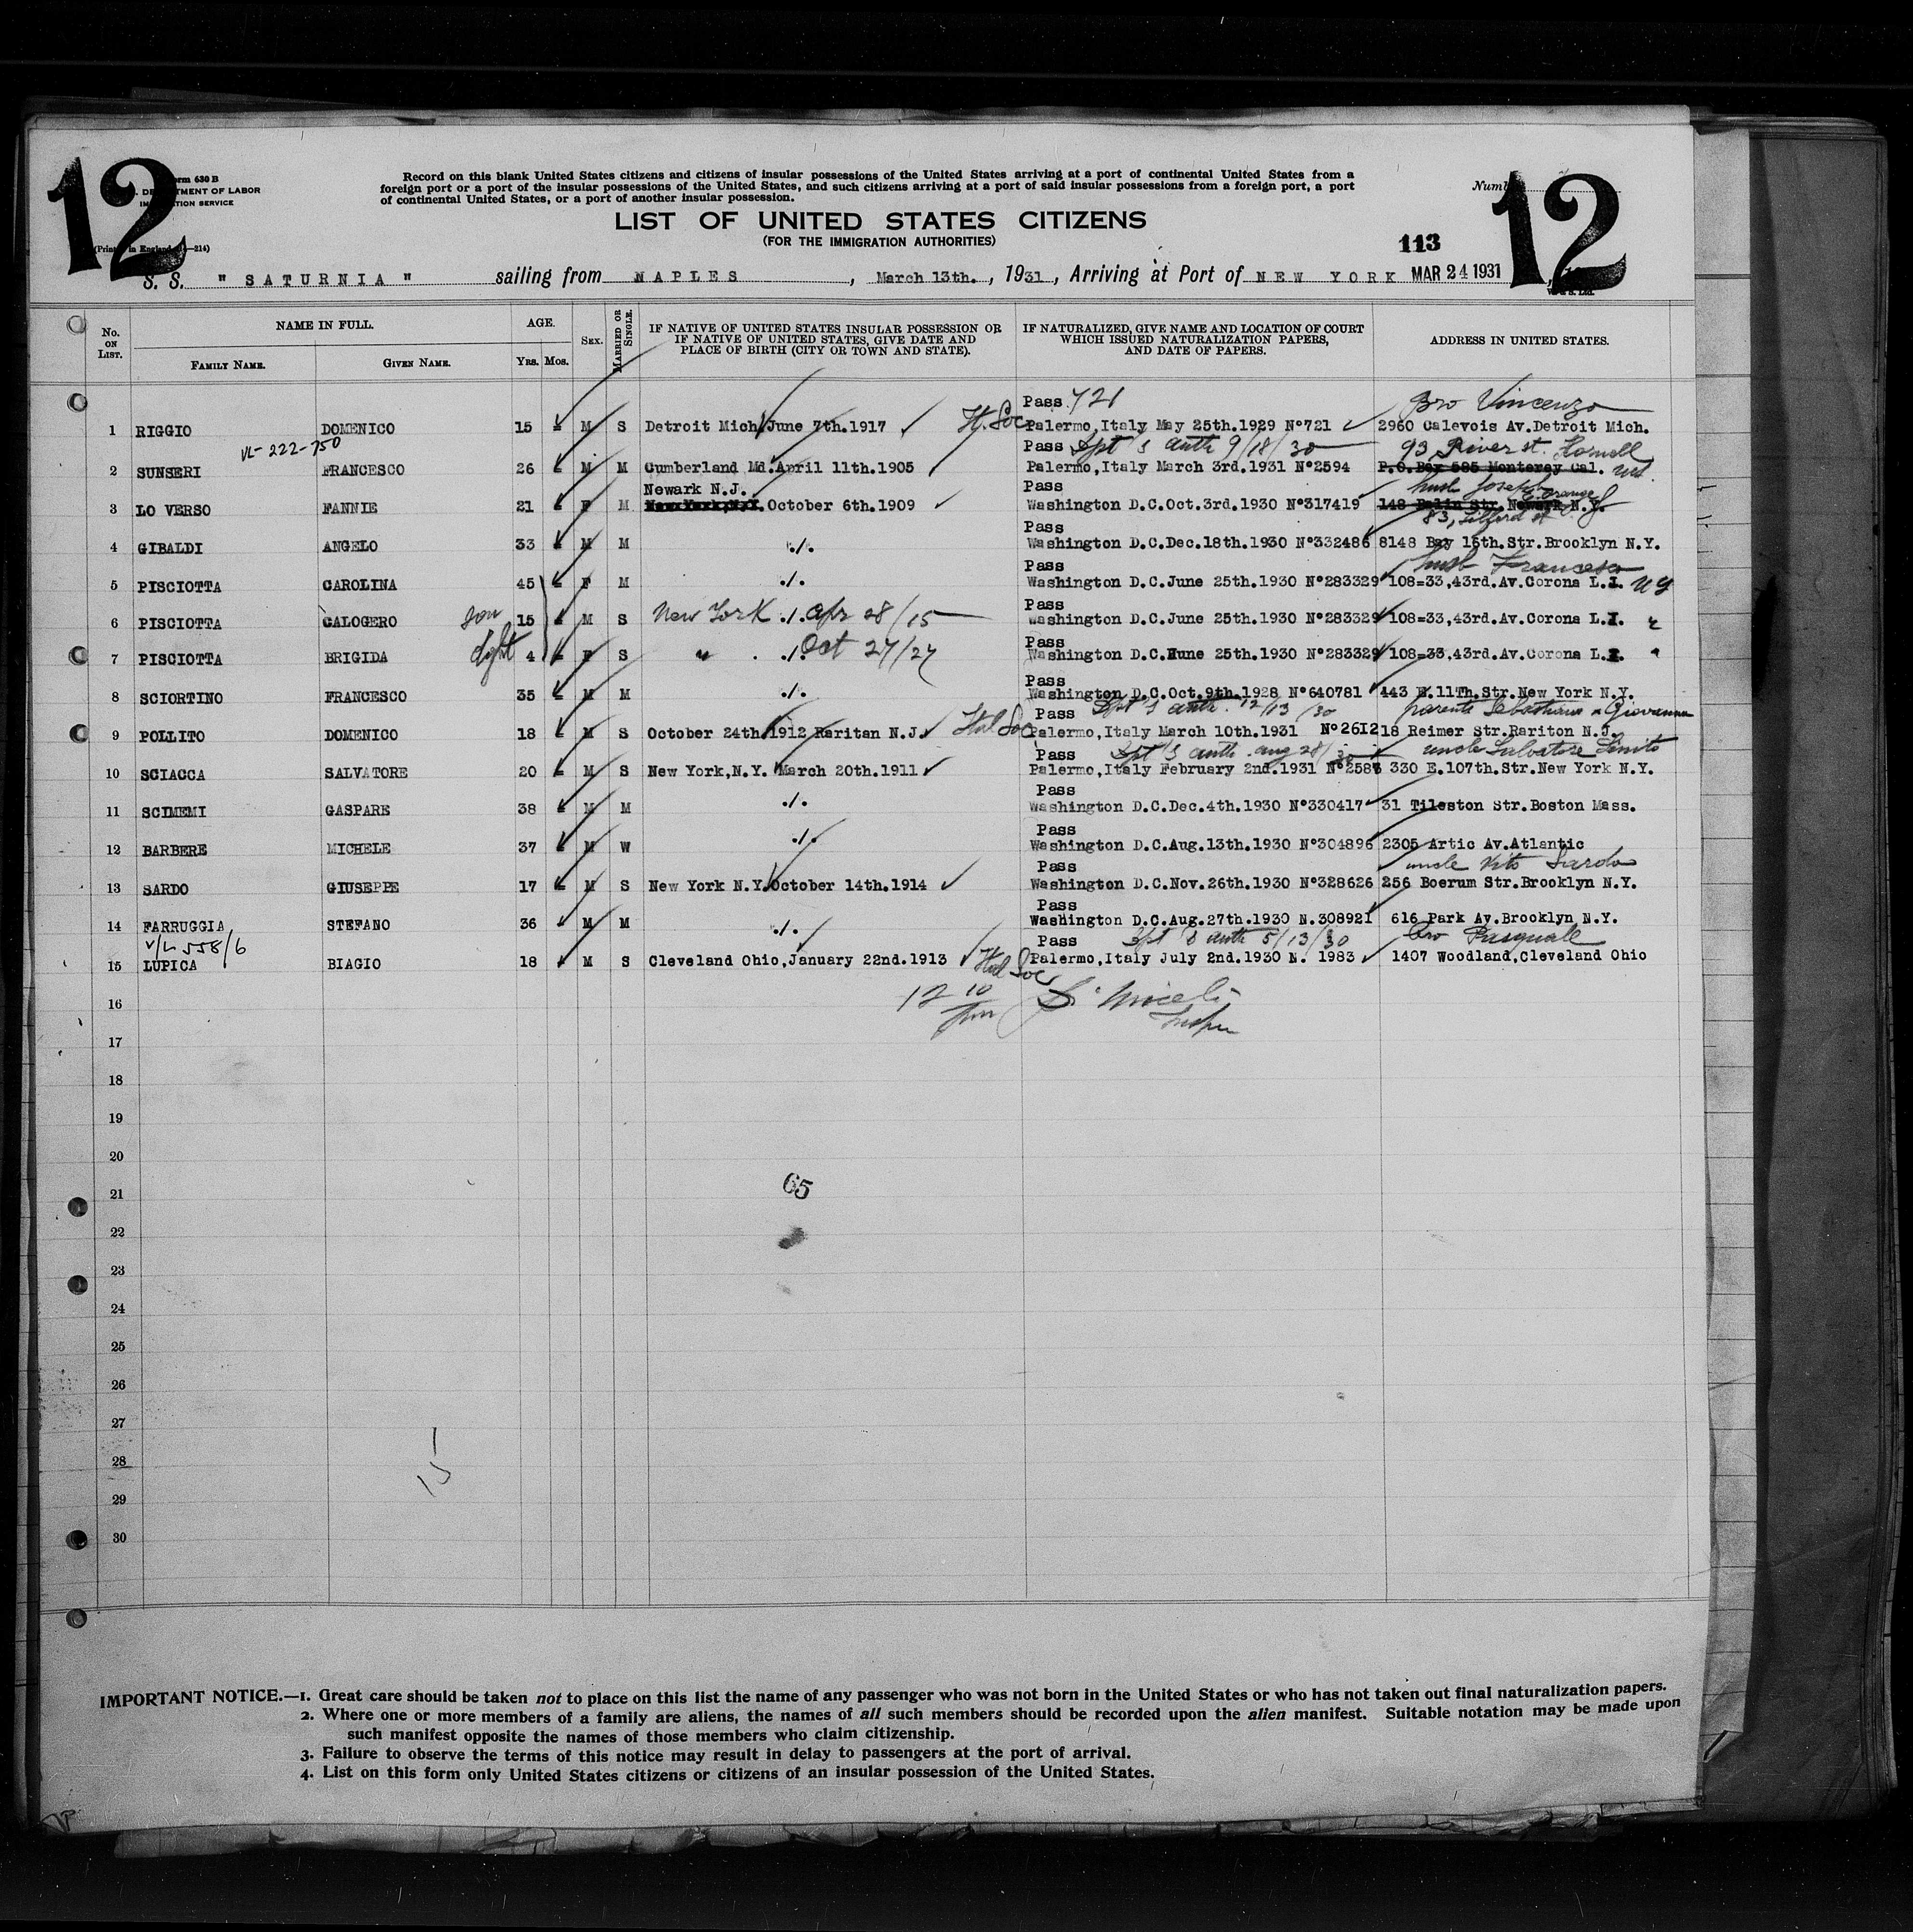 12
Form 630 B
DEPARTMENT OF LABOR
IMMIGRATION SERVICE
(Printed in England —214)
Record on this blank United States citizens and citizens of insular possessions of the United States arriving at a port of continental United States from a
foreign port or a port of the insular possessions of the United States, and such citizens arriving at a port of said insular possessions from a foreign port, a port
of continental United States, or a port of another insular possession.
Number
12
LIST OF UNITED STATES CITIZENS
(FOR THE IMMIGRATION AUTHORITIES)
113
S. S. " SATURNIA " sailing from NAPLES , March 13th. , 1931 , Arriving at Port of NEW YORK MAR 24 1931
No. ON LIST. NAME IN FULL. AGE. SEX. MARRIED OR SINGLE. IF NATIVE OF UNITED STATES INSULAR POSSESSION OR IF NATIVE OF UNITED STATES, GIVE DATE AND PLACE OF BIRTH (CITY OR TOWN AND STATE). IF NATURALIZED, GIVE NAME AND LOCATION OF COURT WHICH ISSUED NATURALIZATION PAPERS, AND DATE OF PAPERS. ADDRESS IN UNITED STATES.
FAMILY NAME. GIVEN NAME. YRS. MOS.
Pass 721 Bro Vincenzo
1 RIGGIO DOMENICO 15 - M S Detroit Mich. June 7th.1917 It. Soc Palermo, Italy May 25th.1929 N°721 2960 Calevois Av.Detroit Mich.
VL-222-750 Pass Dpt's auth 9/18/30 93 River st. Hornell
2 SUNSERI FRANCESCO 26 - M M Cumberland Md.April 11th.1905 Palermo,Italy March 3rd.1931 N°2594 P.O.Box 585 Monterey Cal.
Newark N.J. Pass husb Joseph
3 LO VERSO FANNIE 21 - F M New York,N.Y. October 6th.1909 Washington D.C.Oct.3rd.1930 N°317419 148 Str. Newark N.Y.
Pass 83, st
4 GIBALDI ANGELO 33 - M M ./. Washington D.C.Dec.18th.1930 N°332486 8148 Bay 15th.Str.Brooklyn N.Y.
Pass husb Francesco
5 PISCIOTTA CAROLINA 45 - F M ./. Washington D.C.June 25th.1930 N°283329 108=33,43rd.Av.Corona L.I. NY
Pass
6 PISCIOTTA CALOGERO son 15 - M S New York ./. apr 28/15 Washington D.C.June 25th.1930 N°283329 108=33,43rd.Av.Corona L.I. "
Pass
7 PISCIOTTA BRIGIDA dght 4 - F S " ./. Oct 27/27 Washington D.C.Hune 25th.1930 N°283329 108=33,43rd.Av.Corona L.I. "
Pass
8 SCIORTINO FRANCESCO 35 - M M ./. Washington D.C.Oct.9th.1928 N°640781 443 E.11Th.Str.New York N.Y.
Pass Dpt's auth. 12/13/30 parents Sebastiano & Giovanna
9 POLLITO DOMENICO 18 - M S October 24th.1912 Raritan N.J. Ital Soc Palermo,Italy March 10th.1931 N°2612 18 Reimer Str.Rariton N.J.
Pass Dpt's auth. aug 28/30 uncle Salvatore
10 SCIACCA SALVATORE 20 - M S New York,N.Y. March 20th.1911 Palermo,Italy February 2nd.1931 N°2587 330 E.107th.Str.New York N.Y.
Pass
11 SCIMEMI GASPARE 38 - M M ./. Washington D.C.Dec.4th.1930 N°330417 31 Tileston Str.Boston Mass.
Pass
12 BARBERE MICHELE 37 - M W ./. Washington D.C.Aug.13th.1930 N°304896 2305 Artic Av.Atlantic
Pass uncle Vito Sardo
13 SARDO GIUSEPPE 17 - M S New York N.Y.October 14th.1914 Washington D.C.Nov.26th.1930 N°328626 256 Boerum Str.Brooklyn N.Y.
Pass
14 FARRUGGIA STEFANO 36 M M ./. Washington D.C.Aug.27th.1930 N.308921 616 Park Av.Brooklyn N.Y.
V/L 558/6 Pass Dpt's auth 5/13/30 Bro Pasquale
15 LUPICA BIAGIO 18 M S Cleveland Ohio,January 22nd.1913 Ital Soc Palermo,Italy July 2nd.1930 N. 1983 1407 Woodland,Cleveland Ohio
16 12 10
17
18
19
20
21 65
22
23
24
25
26
27
28
15
29
30
IMPORTANT NOTICE.—1. Great care should be taken not to place on this list the name of any passenger who was not born in the United States or who has not taken out final naturalization papers.
2. Where one or more members of a family are aliens, the names of all such members should be recorded upon the alien manifest. Suitable notation may be made upon
such manifest opposite the names of those members who claim citizenship.
3. Failure to observe the terms of this notice may result in delay to passengers at the port of arrival.
4. List on this form only United States citizens or citizens of an insular possession of the United States.